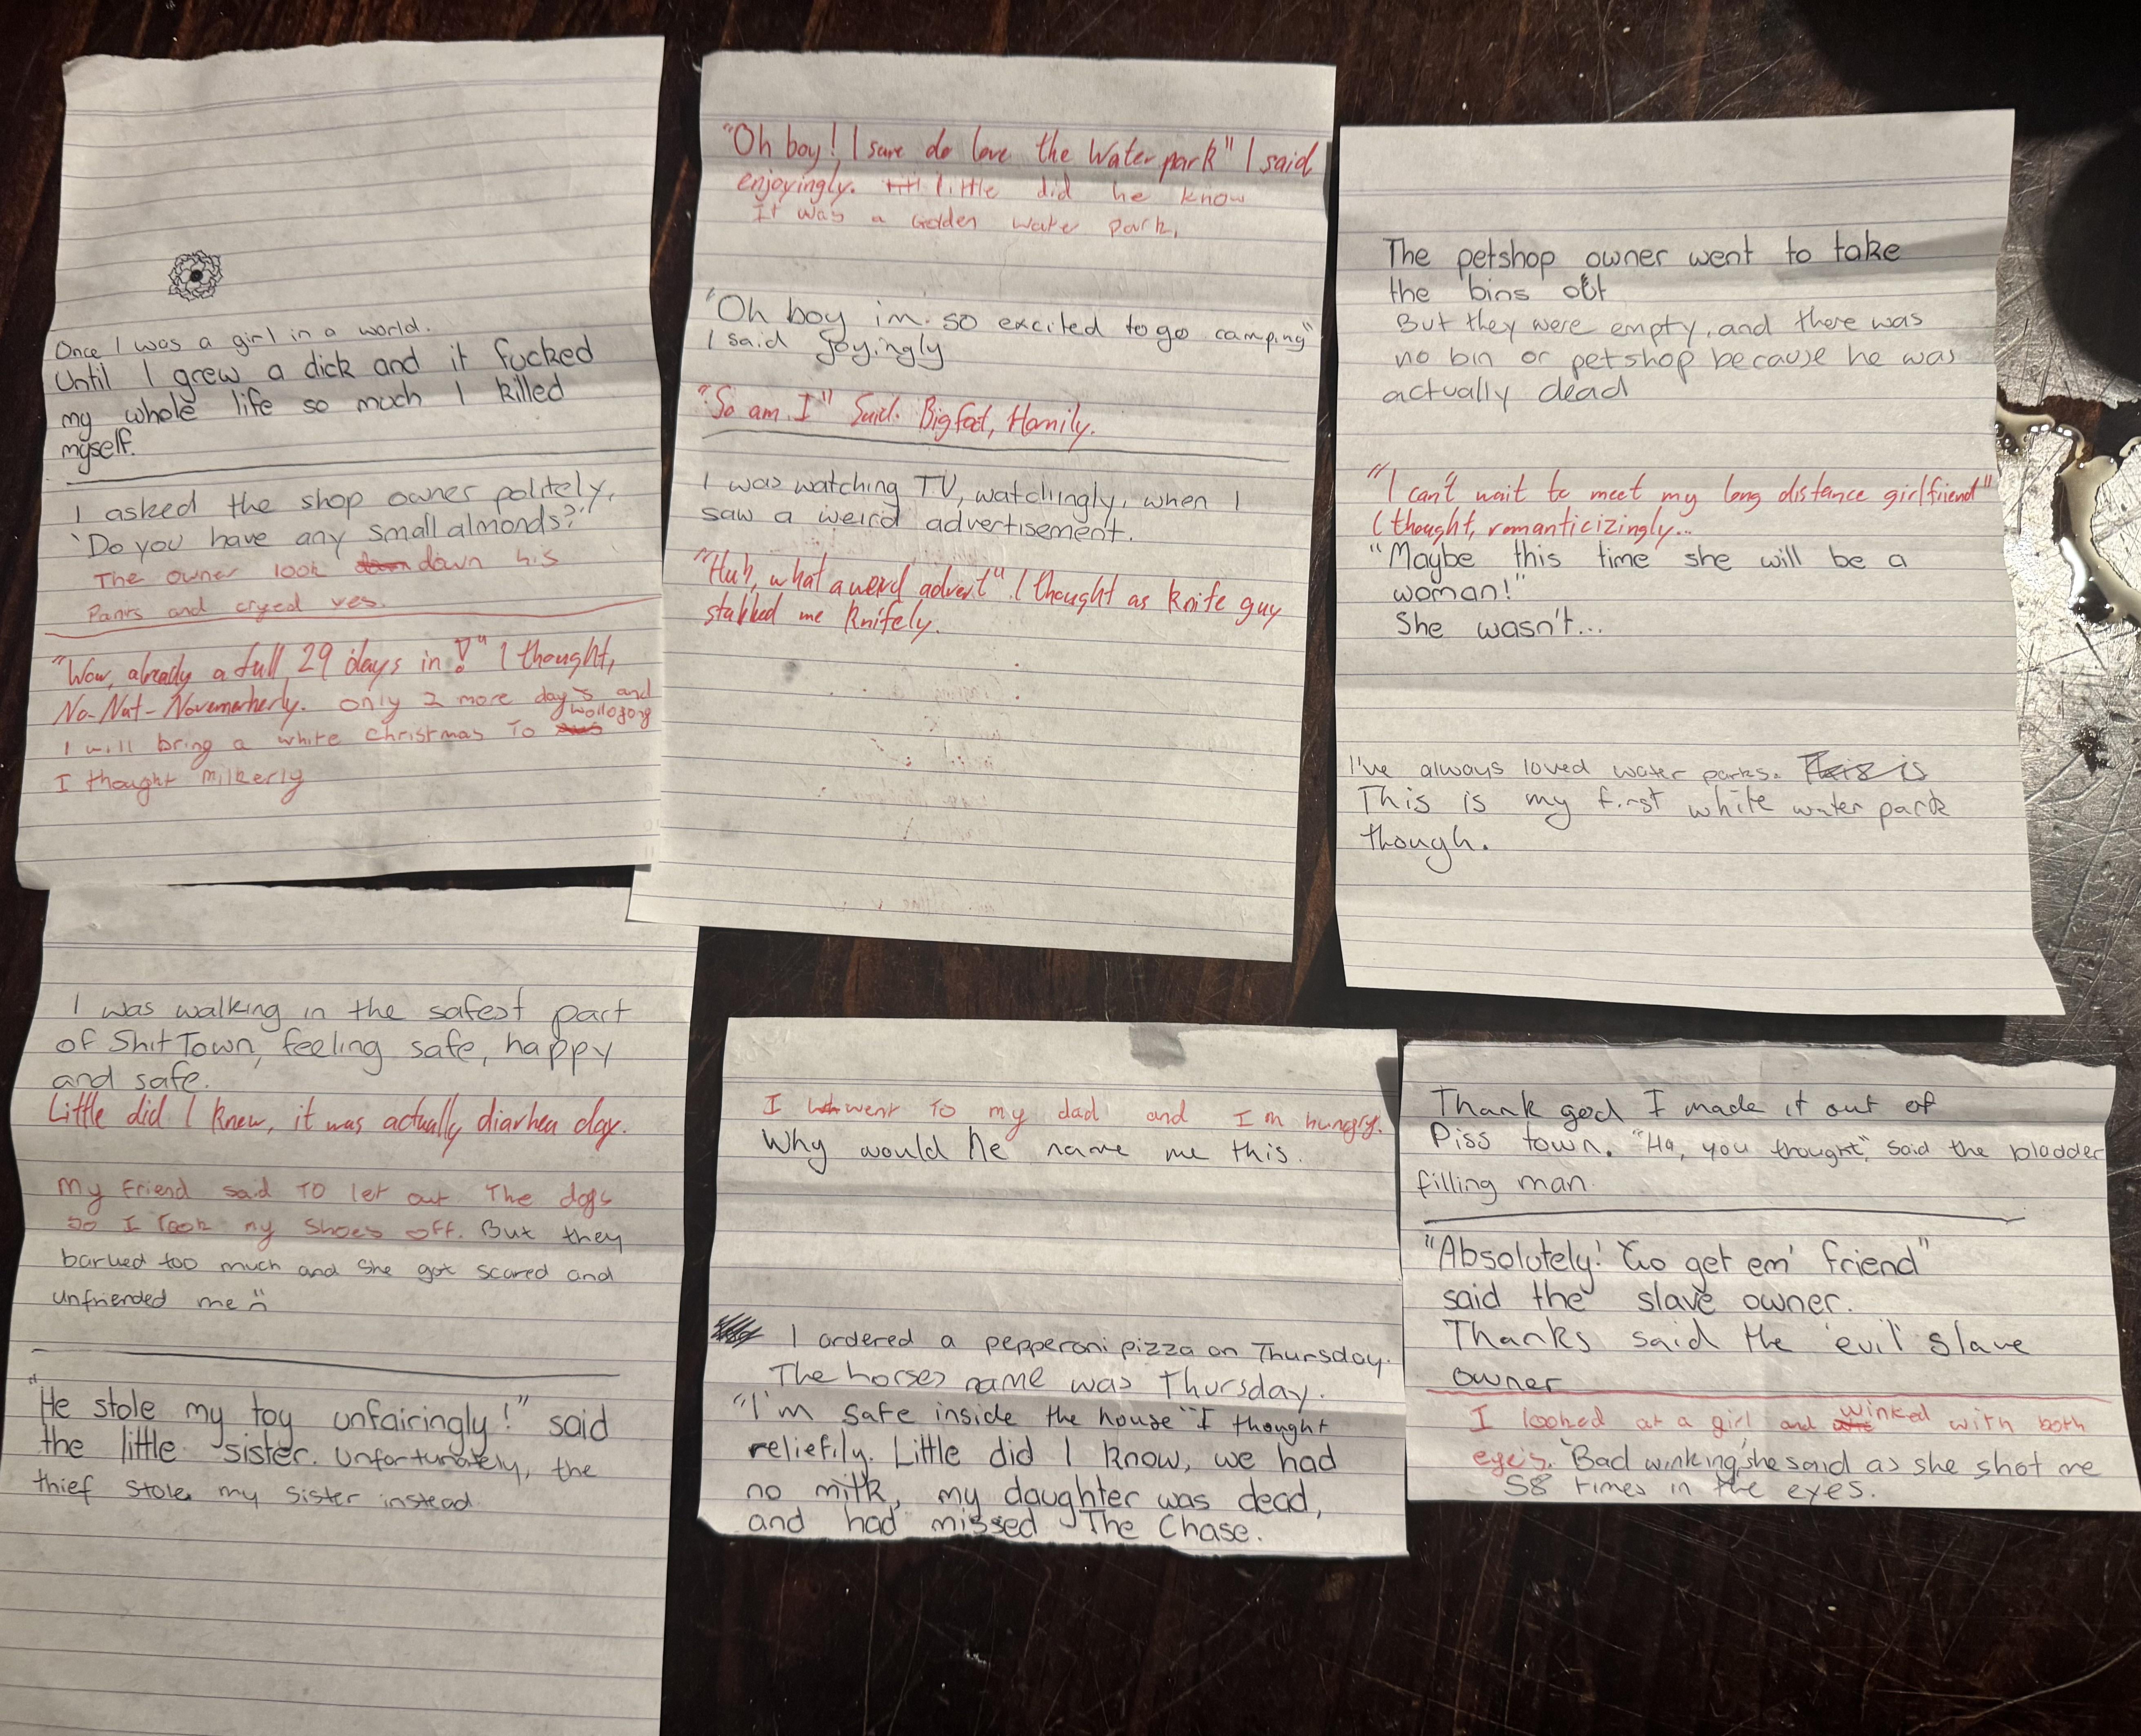 Once I was a girl in a world.
Until I grew a dick and it fucked
my whole life so much I killed
myself.
I asked the shop owner politely,
'Do you have any small almonds?'
The owner look down down his
Pants and cryed yes.
"Wow, already a full 29 days in!" I thought,
No-Nut-Novemberly. only 2 more days and
I will bring a white christmas to wollogong
I thought milkerly
"Oh boy! I sure do love the Water park" I said
enjoyingly. little did he know
It was a Golden water park.
"Oh boy im so excited to go camping"
I said joyingly
"So am I" Said Bigfoot, Hornily.
I was watching TV, watchingly, when I
saw a weird advertisement.
"Huh, what a weird advert" I thought as knife guy
stabbed me knifely.
The petshop owner went to take
the bins out
But they were empty, and there was
no bin or petshop because he was
actually dead
"I can't wait to meet my long distance girlfriend"
I thought, romanticizingly...
"Maybe this time she will be a
woman!"
She wasn't...
I've always loved water parks. This is
This is my first white water park
though.
I was walking in the safest part
of Shit Town, feeling safe, happy
and safe.
Little did I know, it was actually diarhea day.
My Friend said To let out The dogs
so I took my shoes off. But they
barked too much and she got scared and
unfriended me :(
"He stole my toy unfairingly!" said
the little sister. Unfortunately, the
thief stole my sister instead.
I went To my dad and Im hungry.
Why would he name me this.
I ordered a pepperoni pizza on Thursday.
The horses name was Thursday.
"I'm safe inside the house" I thought
reliefily. Little did I know, we had
no milk, my daughter was dead,
and had missed The Chase.
Thank god I made it out of
Piss town. "Ha, you thought", said the bladder
filling man.
"Absolutely! Go get em' friend"
said the slave owner.
Thanks said the 'evil' slave
owner
I looked at a girl and winked with both
eye's. 'Bad winking' she said as she shot me
58 times in the eyes.